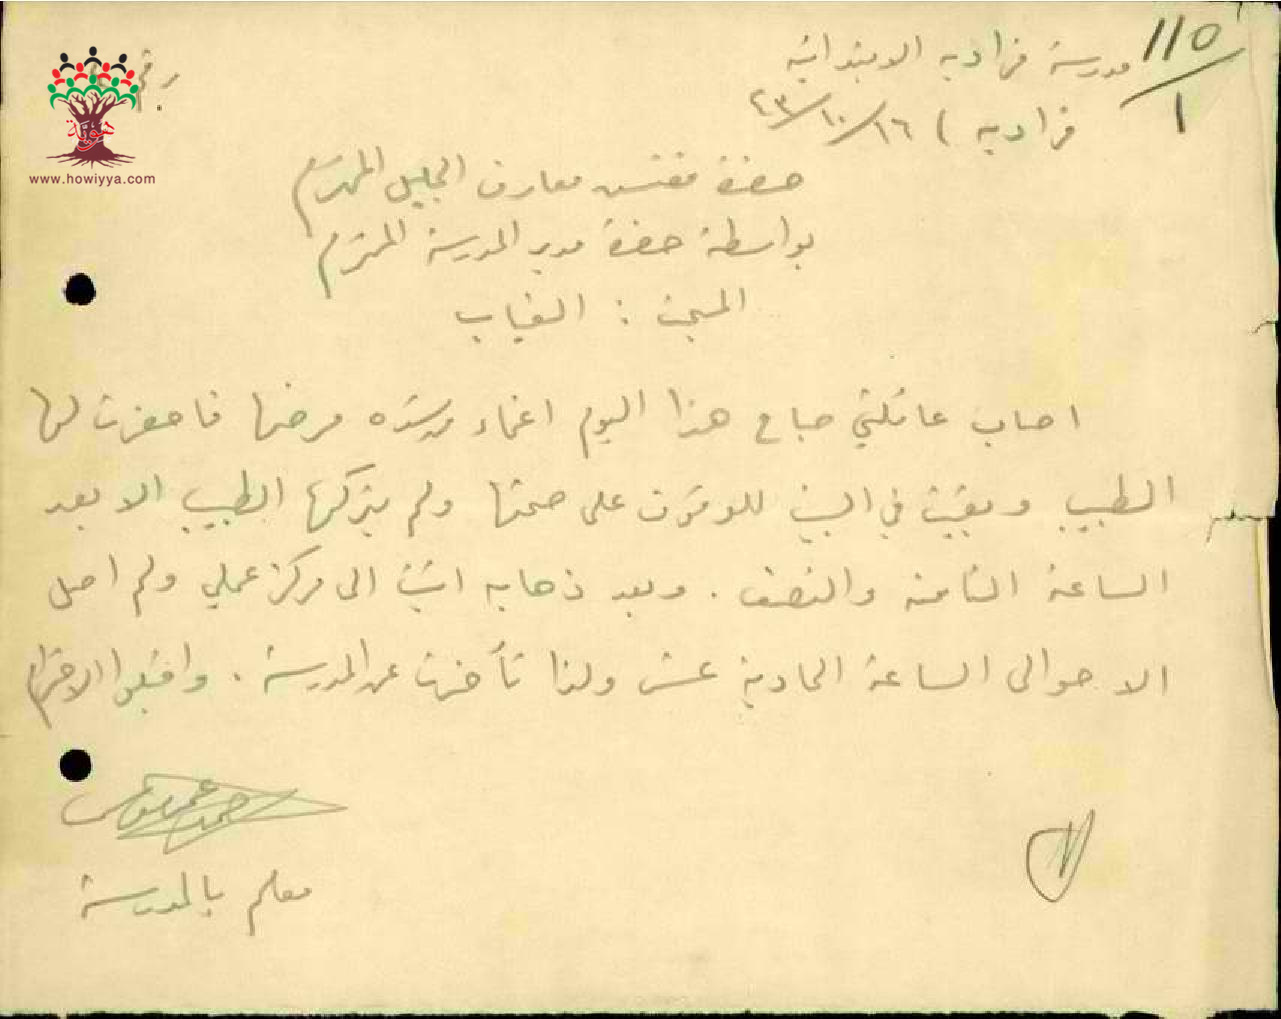 ١١٥
١
مدرسة فراديه الابتدائية
رقم
فراديه ) ١٦/١٠/٤٣
هوية
www.howiyya.com
حضرة مفتش معارف الجليل المحترم
بواسطة حضرة مدير المدرسة المحترم
المبحث : الغياب
اصاب عائلتي صباح هذا اليوم اغماء وشدة مرضها فاحضرت لها
الطبيب وبقيت في البيت للوقوف على صحتها ولم يتركها الطبيب الا بعد
الساعة الثامنة والنصف . وبعد ذهابه اتيت الى مركز عملي ولم اصل
الا حوالي الساعة الحادية عشر ولذا تأخرت عن المدرسة . واقبلوا الاحترام
معلم بالمدرسة